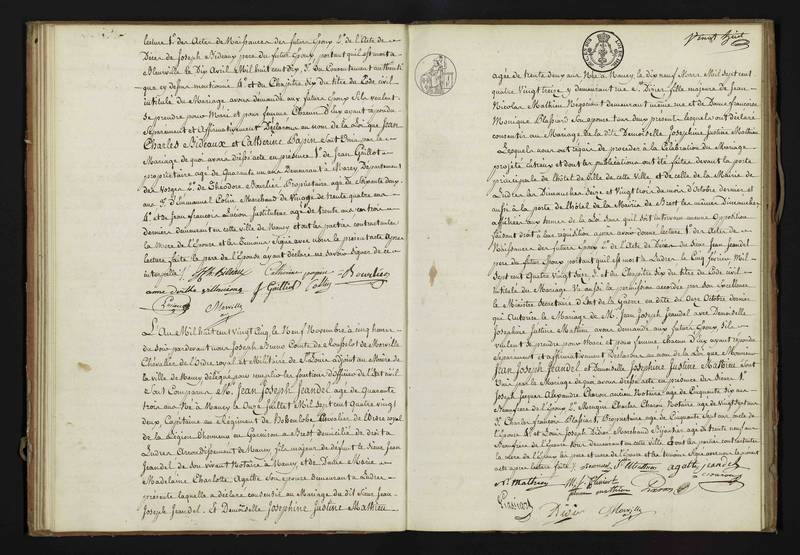 lecture 1º des Actes de Naissances des futurs Epoux 2º de l'Acte de
Décès de Joseph Bideaux pere du futur Epoux portant qu'il est mort à
le Dix Avril Mil huit cent Dix, 3º du Consentement authentique
que cy dessus mentionné 4º et du Chapitre Six du titre du Code civil
intitulé du Mariage avons demandé aux futurs Epoux s'ils veulent
se prendre pour Mari et pour femme Chacun d'Eux ayant répondu
Séparément et affirmativement Déclarons au nom de la Loi que Jean
Charles Bideaux et Catherine Papin sont Unis par le
Mariage de quoi avons dressé acte en présence 1º de Jean Guillot
propriétaire agé de Quarante un ans Demeurant à Département
des Vosges 2º de Théodore Propriétaire agé de Soixante deux
ans 3º d'Emmanuel Colin Marchand de agé de trente quatre ans
4º et de Jean francois Instituteur agé de trente ans ces trois
derniers demeurant en cette ville de Nancy et ont les parties contractantes
la Mere de l'Epouse et les Témoins Signé avec nous le présent acte Après
lecture faite le pere de l'Epouse ayant déclaré ne savoir Signer de ce
interpellé
Catherine papin
Colin
Morville
L'An Mil huit cent Vingt Cinq, le Neuf Novembre à cinq heures
du Soir pardevant nous Joseph Comte de Rousselot de Morville
Chevalier de l'Ordre royal et Militaire de St Louis adjoint au Maire de
la ville de Nancy délégué pour remplir les fonctions d'officier de l'Etat civil
Sont Comparus Mr Jean Joseph Jeandel agé de Quarante
trois ans Né à Nancy le Onze Juillet Mil sept cent Quatre vingt
deux, Capitaine au Régiment de Hohenlohe Chevalier de l'Ordre royal
de la Légion d'honneur en Garnison à Brest domicilié de droit à
Ludres Arrondissement de Nancy fils majeur de défunt le Sieur Jean
Jeandel de Son vivant Notaire à Nancy et de Dame Marie
Madelaine Charlotte Agathe Son epouse demeurant à Ludres
présente laquelle a déclaré consentir au Mariage du dit Sieur Jean
Joseph Jeandel. Et Demoiselle Josephine Justine Mathieu
Vingt Huit
agée de trente deux ans Née à Nancy, le Dix neuf Mars Mil Sept cent
quatre Vingt treize y demeurant rue St Dizier fille majeure de Jean
Nicolas Mathieu Négociant demeurant même rue et de Dame francoise
Monique Son epouse tous deux présents lesquels ont déclaré
consentir au Mariage de la dite Demoiselle Josephine Justine Mathieu
Lesquels nous ont requis de procéder à la Célébration du Mariage
projeté entr'eux et dont les publications ont été faites devant la porte
principale de l'hôtel de Ville de cette Ville et de celle de la Mairie de
Ludres les Dimanches Seize et Vingt trois du mois d'Octobre dernier et
aussi à la porte de l'hôtel de la Mairie de Brest les mêmes Dimanches
affichées aux termes de la Loi Sans qu'il soit intervenu aucune Opposition
faisant droit à leur réquisition après avoir donné lecture 1º des Actes de
Naissances des futurs Epoux 2º de l'Acte de Décès du Sieur Jean Jeandel
pere du futur Epoux portant qu'il est mort à Ludres le Cinq Mil
Sept cent Quatre Vingt Seize 3º et du Chapitre Six du titre du Code civil
intitulé du Mariage Vu aussi la permission accordée par Son Excellence
le Ministre Secrétaire d'Etat de la Guerre en date du Onze Octobre dernier
qui Autorise le Mariage de Mr Jean Joseph Jeandel avec Demoiselle
Josephine Justine Mathieu avons demandé aux futurs Epoux s'ils
veulent se prendre pour Mari et pour femme chacun d'Eux ayant répondu
Séparément et affirmativement Déclarons au nom de la Loi que Monsieur
Jean Joseph Jeandel et Demoiselle Josephine Justine Mathieu Sont
Unis par le Mariage de quoi avons dressé acte en présence des Sieurs 1º
Joseph Jacques Alexandre ancien Notaire agé de Cinquante Six ans
de l'Epoux 2º Charles Notaire agé de Vingt Sept ans
3º Charles francois Propriétaire agé de Cinquante Sept ans oncle de
l'Epouse 4º et Louis Joseph Didier Marchand Bijoutier agé de trente neuf ans
Beaufrere de l'Epouse tous demeurant en cette ville. Et ont les parties contractantes
la mere de l'Epoux les pere et mere de l'Epouse et les témoins Signé avec nous le présent
acte après lecture faite
jeandel
Jne Mathieu
agathe
Ns. Mathieu
Didier
Morville